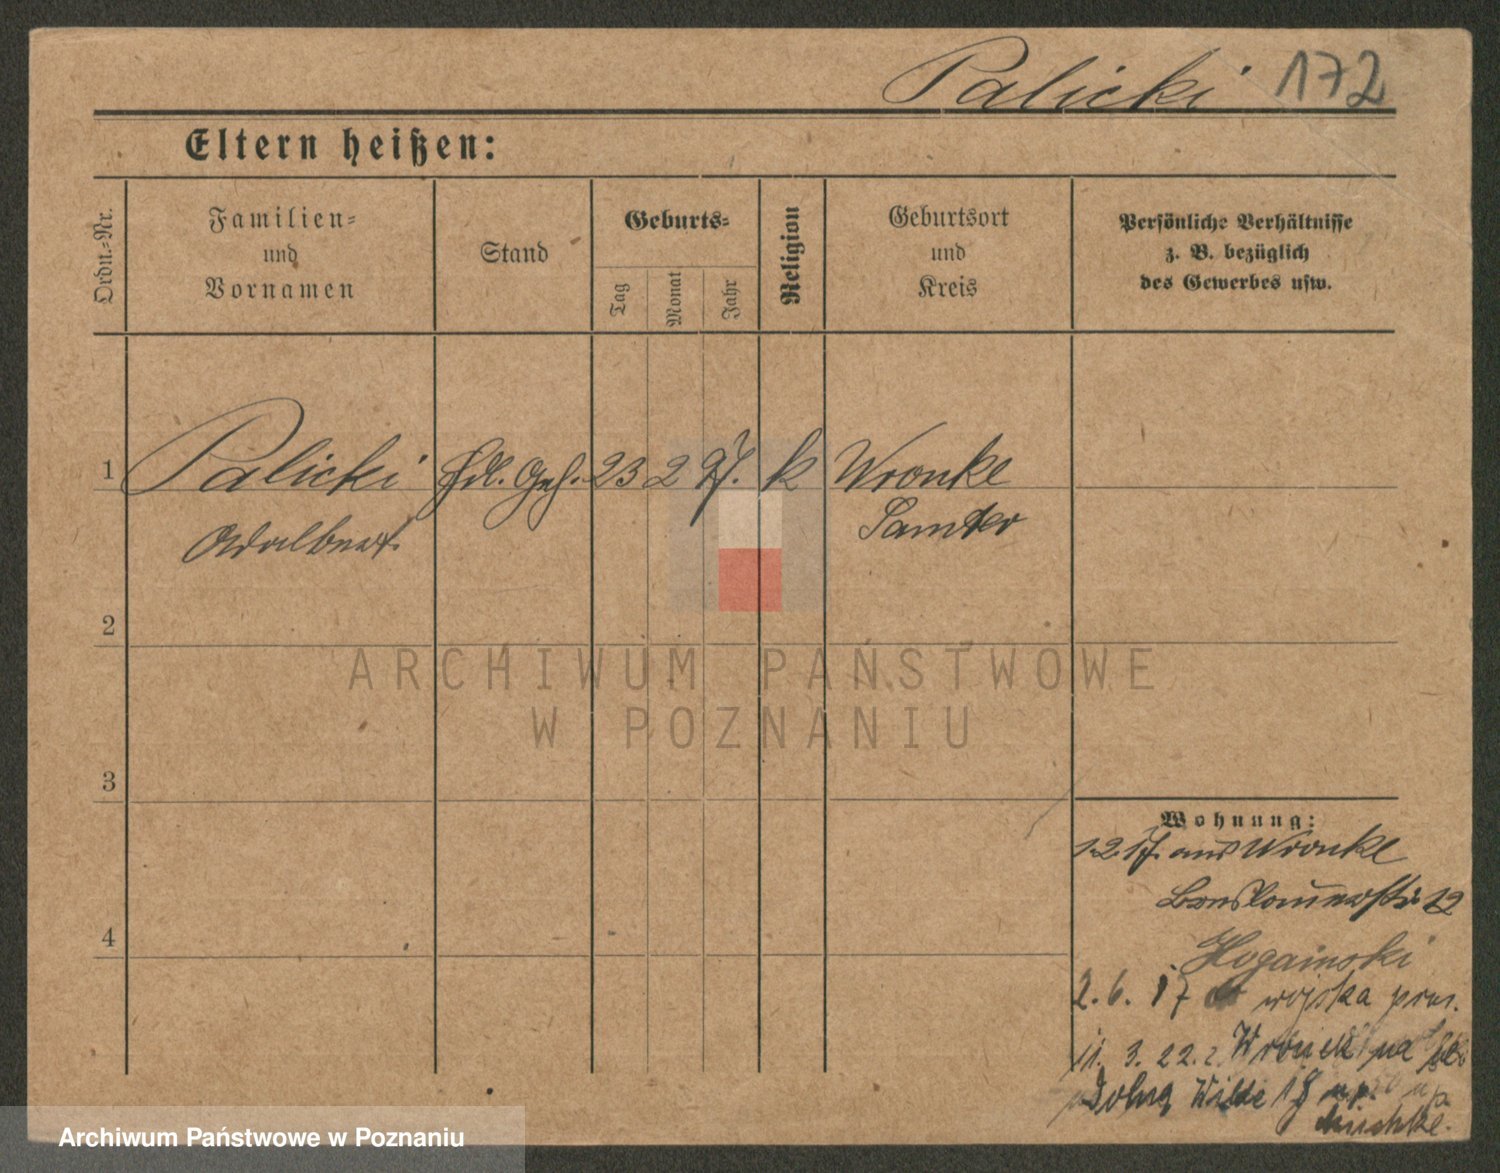 Palicki 172
Eltern heißen:
Ordn.=Nr.
Familien=
und
Vornamen
Stand
Geburts=
Tag
Monat
Jahr
Religion
Geburtsort
und
Kreis
Persönliche Verhältnisse
z. B. bezüglich
des Gewerbes usw.
1 Palicki Hdl. Geh. 23 2 97. k Wronke
Adalbert Samter
2
ARCHIWUM PAŃSTWOWE
W POZNANIU
3
Wohnung:
1.2.17. aus Wronke
Breslauerstr 12
2.6.17 wojska prus.
11. 3. 22. z Wronek na
Dolną Wildę 18
4
Archiwum Państwowe w Poznaniu